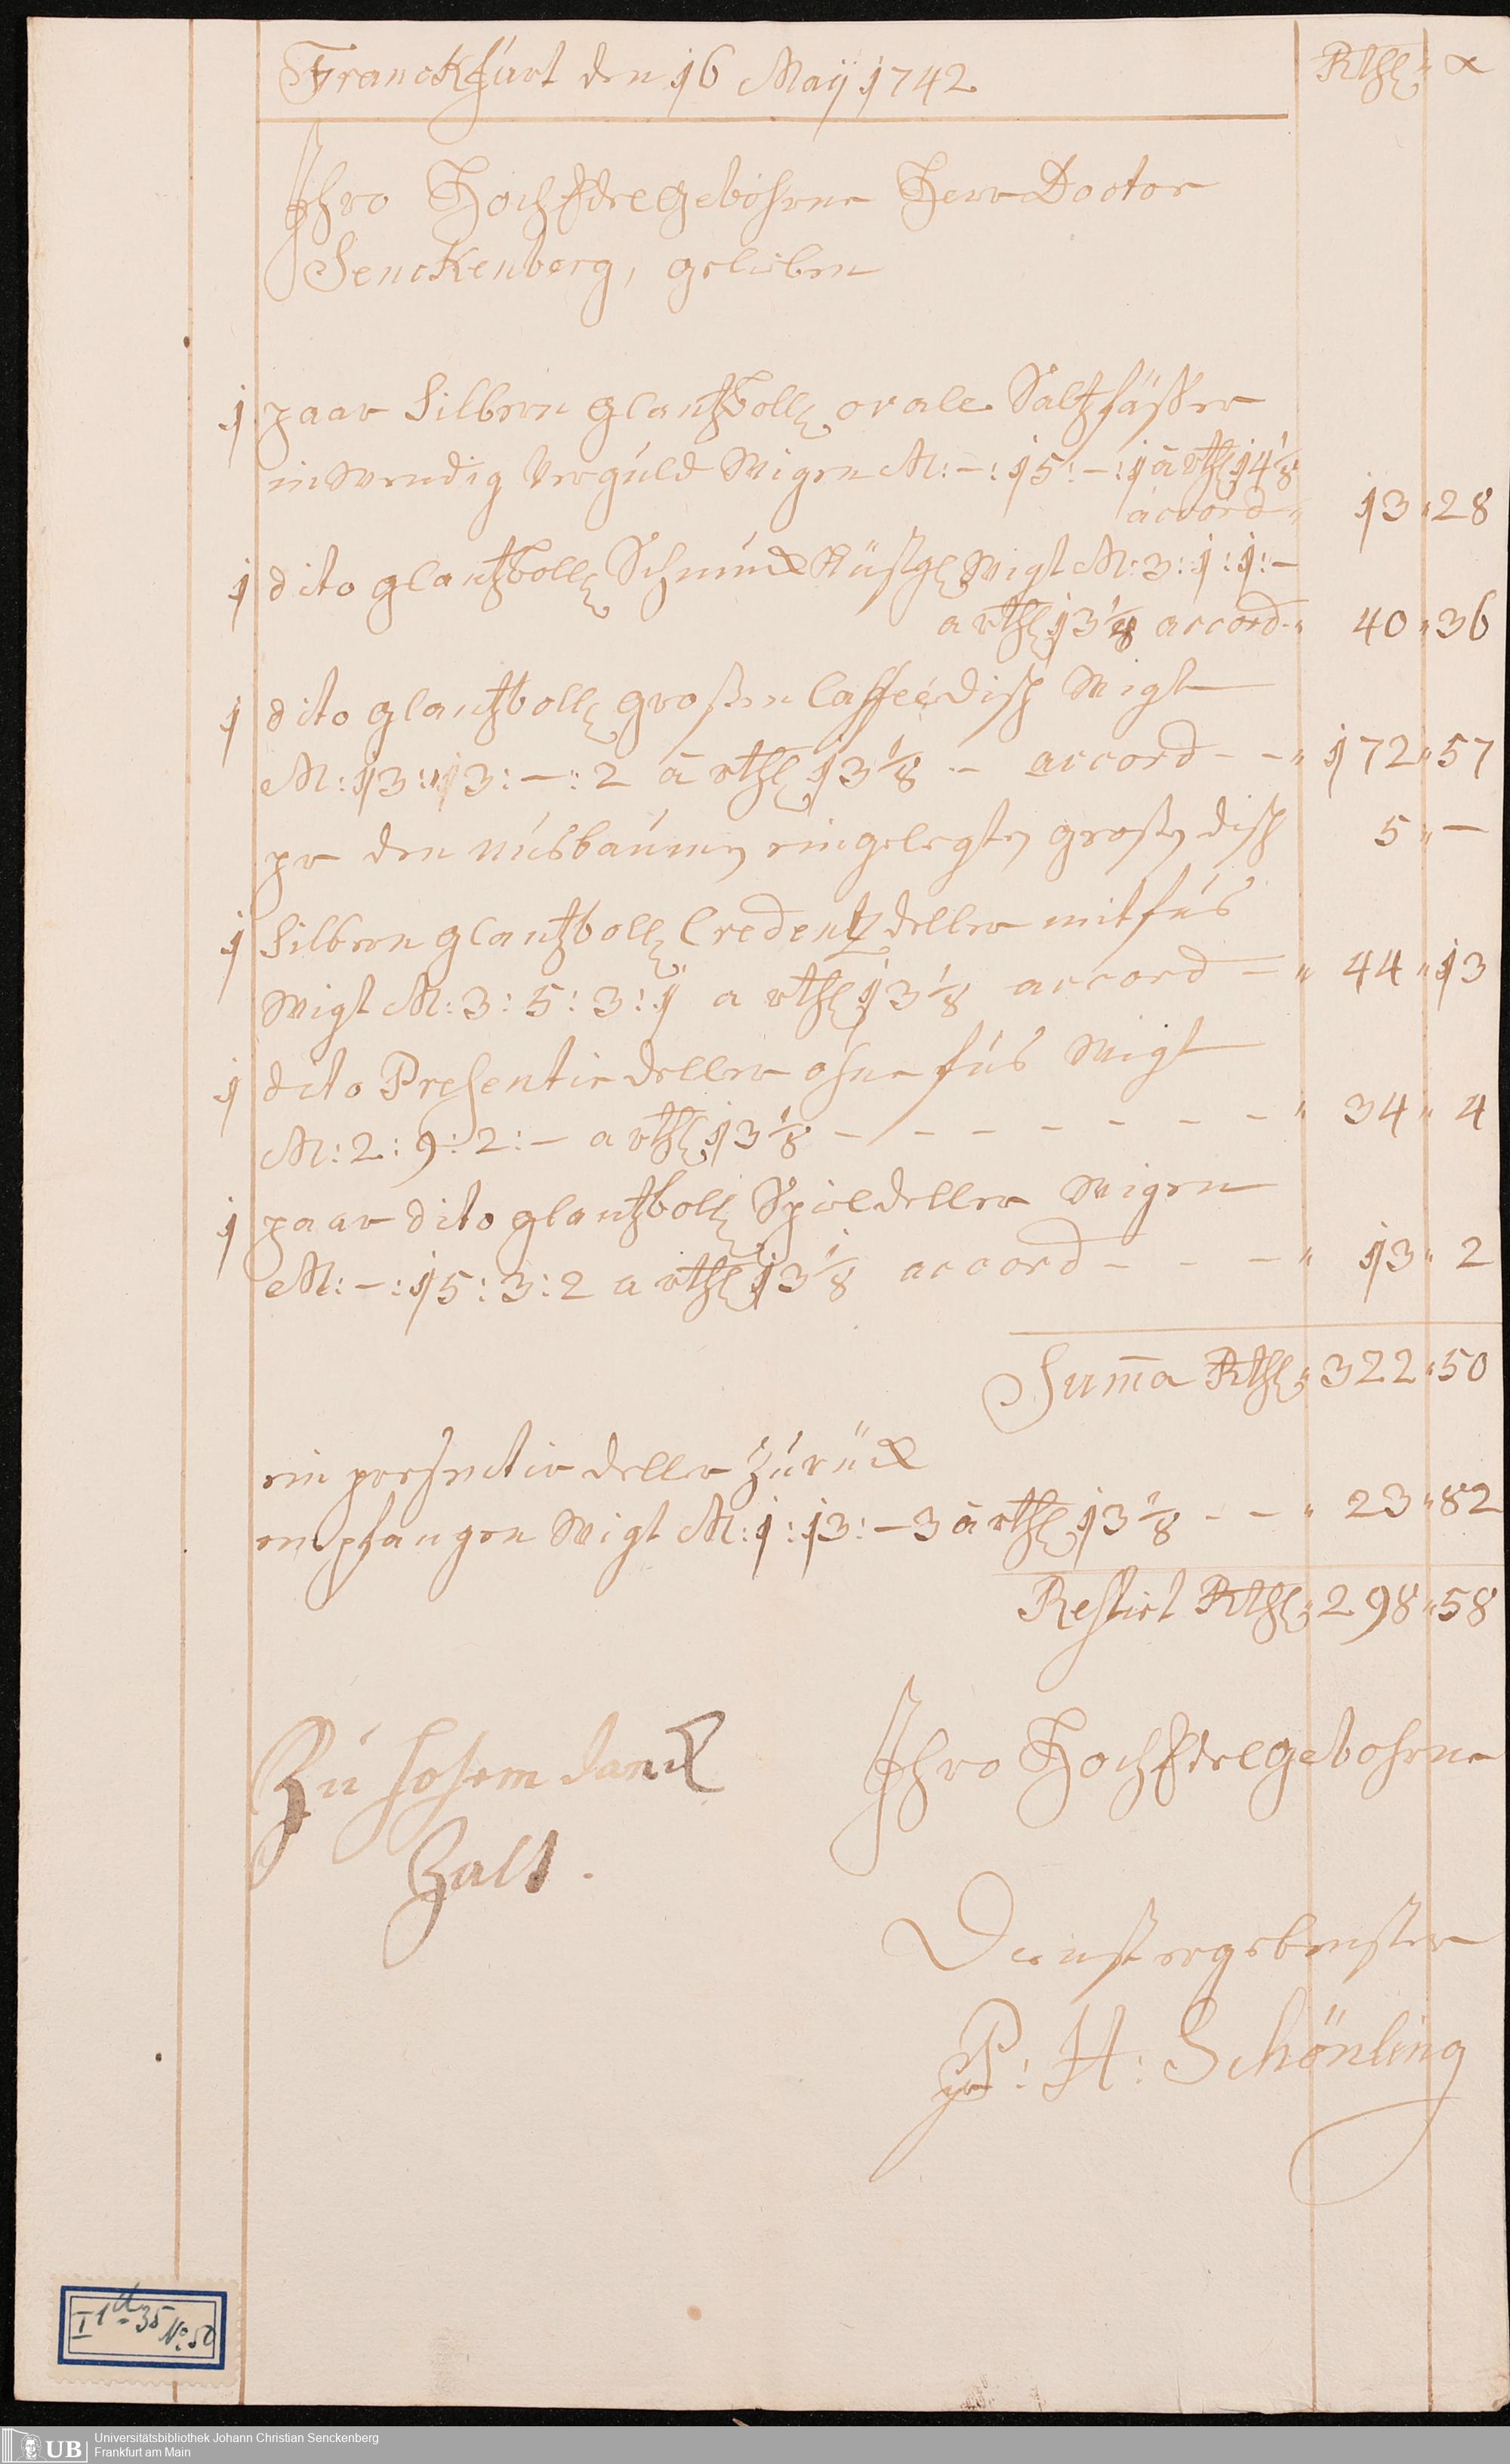 Franckfúrt den 16 Maÿ 1742 Rthl x
Ihro HochEdelgebohrne Herr Doctor
Senckenberg, gelieben
1 paar Silbern glantzvoll ovale Saltzfäßer
inwendig Vergúld Wigen M: - : 15 : - : 1 â rthl 14 1/8
accord 13 " 28
1 dito glantzvoll Schmúck Küstgl Wigt M: 3 : 1 : 1 : -
a rthl 13 1/8 accord - " 40 " 36
1 dito glantzvoll großen Caffeé disch Wigt
M: 13 : 13 : - : 2 â rthl 13 1/8 - accord - - " 172 " 57
pr den núsbaúmen eingelegten großen disch 5 " -
1 Silbern glantzvoll Credentz deller mit fús
Wigt M: 3 : 5 : 3 : 1 a rthl 13 1/8 accord - " 44 " 13
1 dito Presentir deller ohne fús Wigt
M: 2 : 9 : 2 : - a rthl 13 1/8 - - - - - - - " 34 " 4
1 paar dito glantzvoll Spieldeller Wigen
M: - : 15 : 3 : 2 a rthl 13 1/8 accord - - - " 13 " 2
Sum̄a Rthl " 322 " 50
ein presentir deller Zúrück
empfangen Wigt M: 1 : 13 : - 3 â rthl 13 1/8 - - " 23 " 82
Restirt Rthl " 298 " 58
Zú hohem danck
Zalt.
Ihro HochEdelgebohrne
Dienst ergebenster
P: H: Schönling
I 1 d - 35 No. 50
UB Universitätsbibliothek Johann Christian Senckenberg
Frankfurt am Main